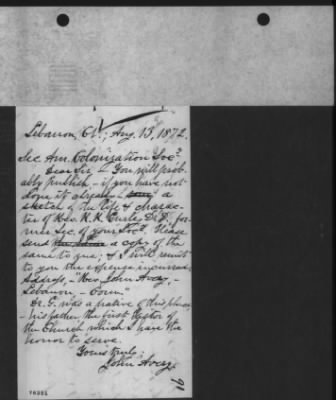 Lebanon, Ct.; Aug. 13, 1872.
Sec. Am. Colonization Soc.
Dear Sir, - You will prob-
ably publish - if you have not
done it already - a
sketch of the life & charac-
ter of Rev. R. R. Gurley D.D. for-
mer Sec. of your Soc. Please
send a copy of the
same to me; & I will remit
to you the expense incurred.
Address, "Rev. John Avery, -
Lebanon - Conn."
Dr. G. was a native of this place
- his father the first Pastor of
the Church which I have the
honor to serve.
Yours truly
John Avery